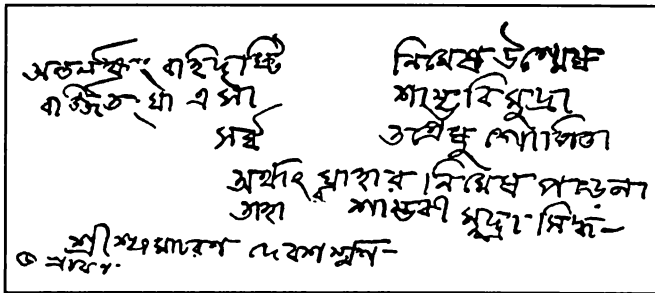 অন্তর্লক্ষ্যং বহির্দৃষ্টি নিমেষ উন্মেষ
বর্জ্জিতং যা এসা শাম্ভবি মুদ্রা
সর্ব্ব তন্ত্রেষু গোপিতা
অর্থাৎ যাহার নিমেষ পড়েনা
তাহা শাম্ভবী মুদ্রা সিদ্ধ—
শ্রীশ্যামাচরণ দেবশর্ম্মণ—